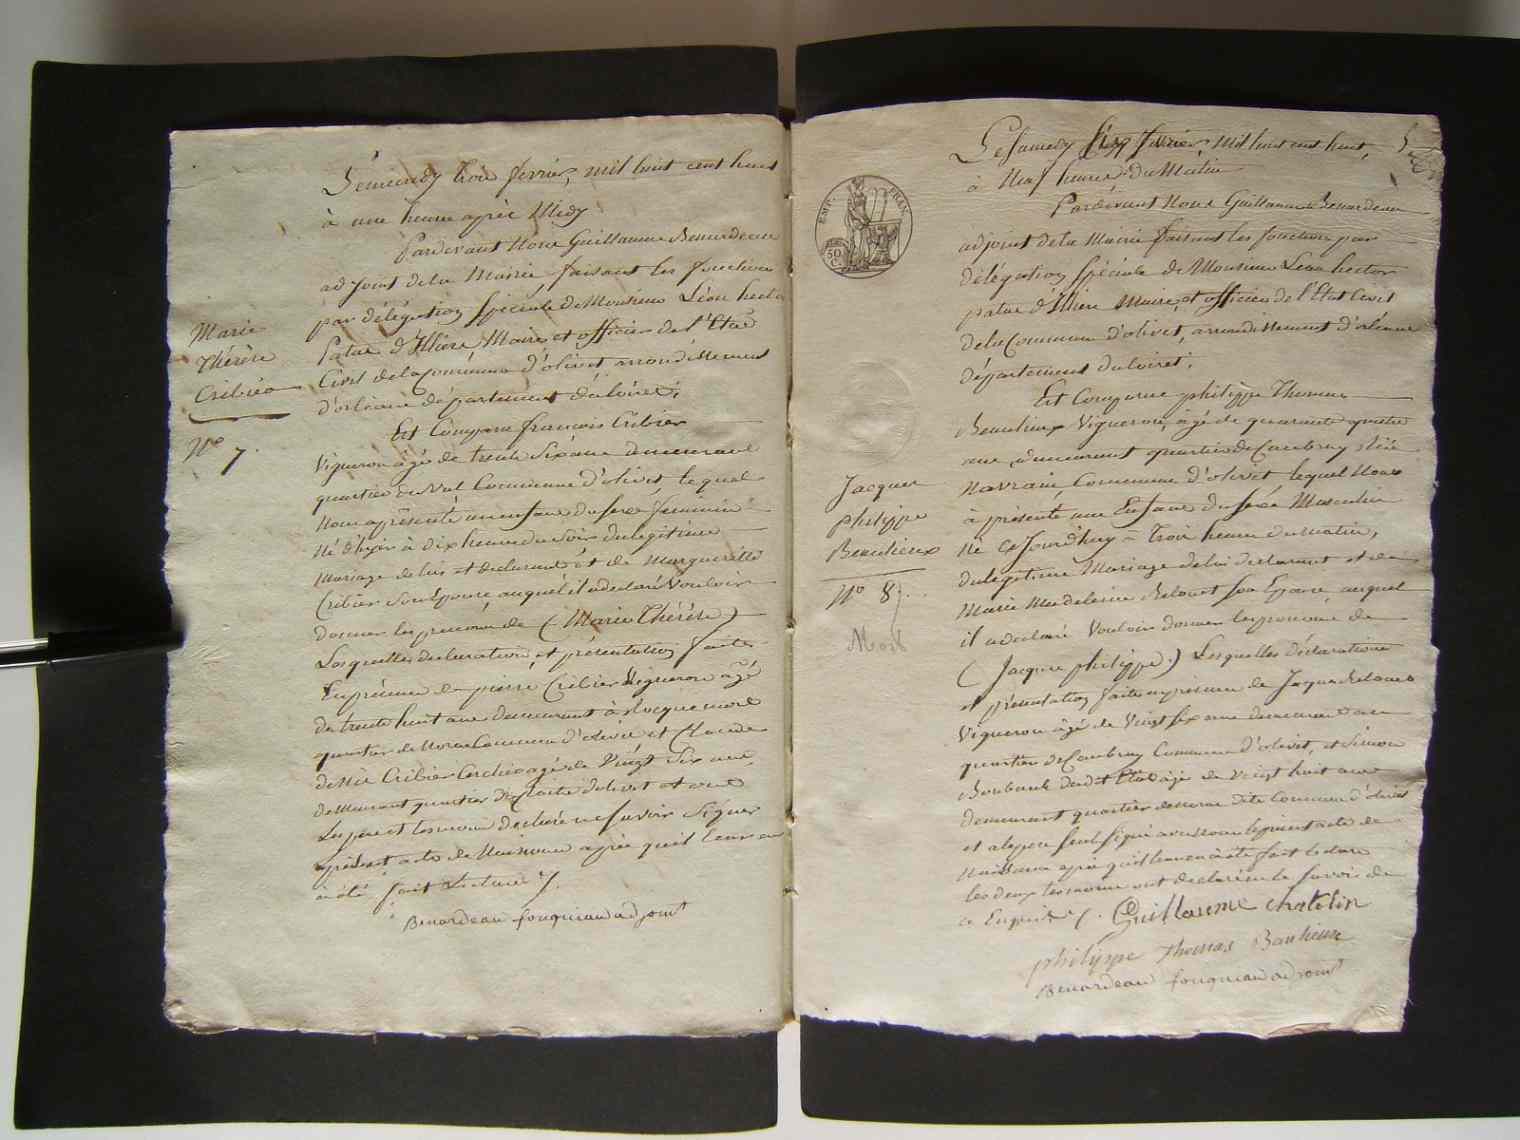 Marie
Thérèse
Cribier
N° 7.
Le mercredy trois février, mil huit cent huit
à une heure après Midy
Pardevant Nous Guillaume Benardeau
adjoint de la Mairie faisant les fonctions
par délégation spéciale de Monsieur Léon hector
patas d'Illiers Maire, et officier de l'Etat
Civil de la Commune d'olivet, arrondissement
d'orléans département du loiret;
Est Comparu françois Cribier
Vigneron âgé de trente six ans demeurant
quartier du Val Commune d'olivet, lequel
Nous a présenté un enfant du sexe féminin
Né d'hyer à dix heures du soir du légitime
Mariage de lui et déclarant et de Margueritte
Cribier son Epouse, auquel il a déclaré Vouloir
donner les prenoms de (Marie Thérèse)
Lesquelles déclaration, et présentation faites
En présence de pierre Cribier Vigneron âgé
de trente huit ans demeurant à
quartier de Commune d'olivet et
Cribier âgé de Vingt Six ans
demeurant quartier d'olivet et ont
Le père et témoins déclaré ne savoir Signer
le présent acte de Naissance après qu'il leur en
à été fait Lecture
Benardeau fouqueau adjoint
Le Samedy Six février, mil huit cent huit,
à Neuf heures du Matin
Pardevant Nous Guillaume Benardeau
adjoint de la Mairie faisant les fonctions par
délégation spéciale de Monsieur Léon hector
patas d'Illiers Maire, et officier de l'Etat Civil
de la Commune d'olivet, arrondissement d'orléans
département du loiret;
Est Comparu philippe Thomas
Beaulieux Vigneron, âgé de quarante quatre
ans, demeurant quartier de Caubray
Commune d'olivet, lequel Nous
à présenté un Enfant du sexe Masculin
Né Ce Jourd'huy à Trois heures du matin,
du légitime Mariage de lui déclarant et de
Marie Madeleine son Epouse, auquel
il a déclaré Vouloir donner les prenoms de
(Jacques philippe.) Lesquelles déclaration
et présentation faites en présence de Jacques
Vigneron âgé de Vingt six ans demeurant au
quartier de Caubray Commune d'olivet, et Simon
dudit Etat âgé de vingt huit ans
demeurant quartier dite Commune d'olivet
et a le père seul signé avec nous le présent acte de
Naissance après qu'il leur en à été fait lecture
les deux témoins ont déclaré ne le savoir de
ce Enquis
Guillaume chatelin
philippe Thomas
Benardeau fouqueau adjoint
EMP. FRAN.
50 C.
Jacques
philippe
Beaulieux
N° 8.
Mort
5